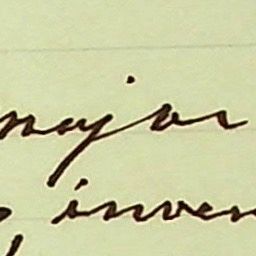 major
, inven